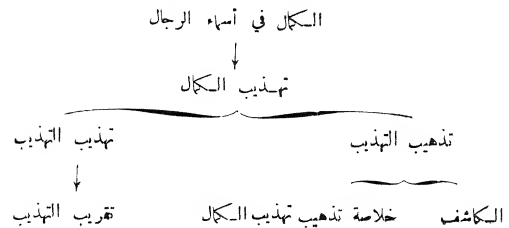 الكمال في أسماء الرجال
تهذيب الكمال
تذهيب التهذيب تهذيب التهذيب
الكاشف خلاصة تذهيب تهذيب الكمال تقريب التهذيب